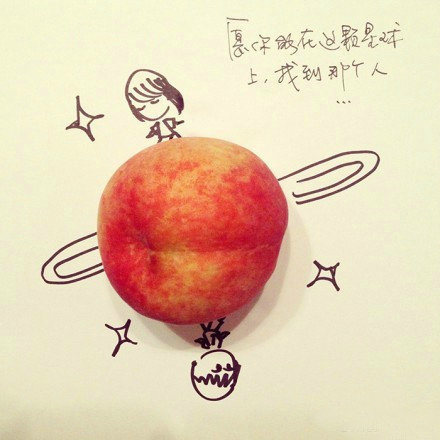 「愿你能在这颗星球
上,找到那个人
...